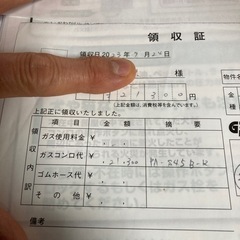 領収証
領収日2023年9月20日
様
物件名
¥21,300円
(上記金額は、消費税等を含んでいます。)
上記正に領収いたしました。
領収内訳
項目 金額 摘要
ガス使用料金 ¥
ガスコンロ代 ¥ 21,300 PA-245B-R
ゴムホース代 ¥
その他 ¥
備考